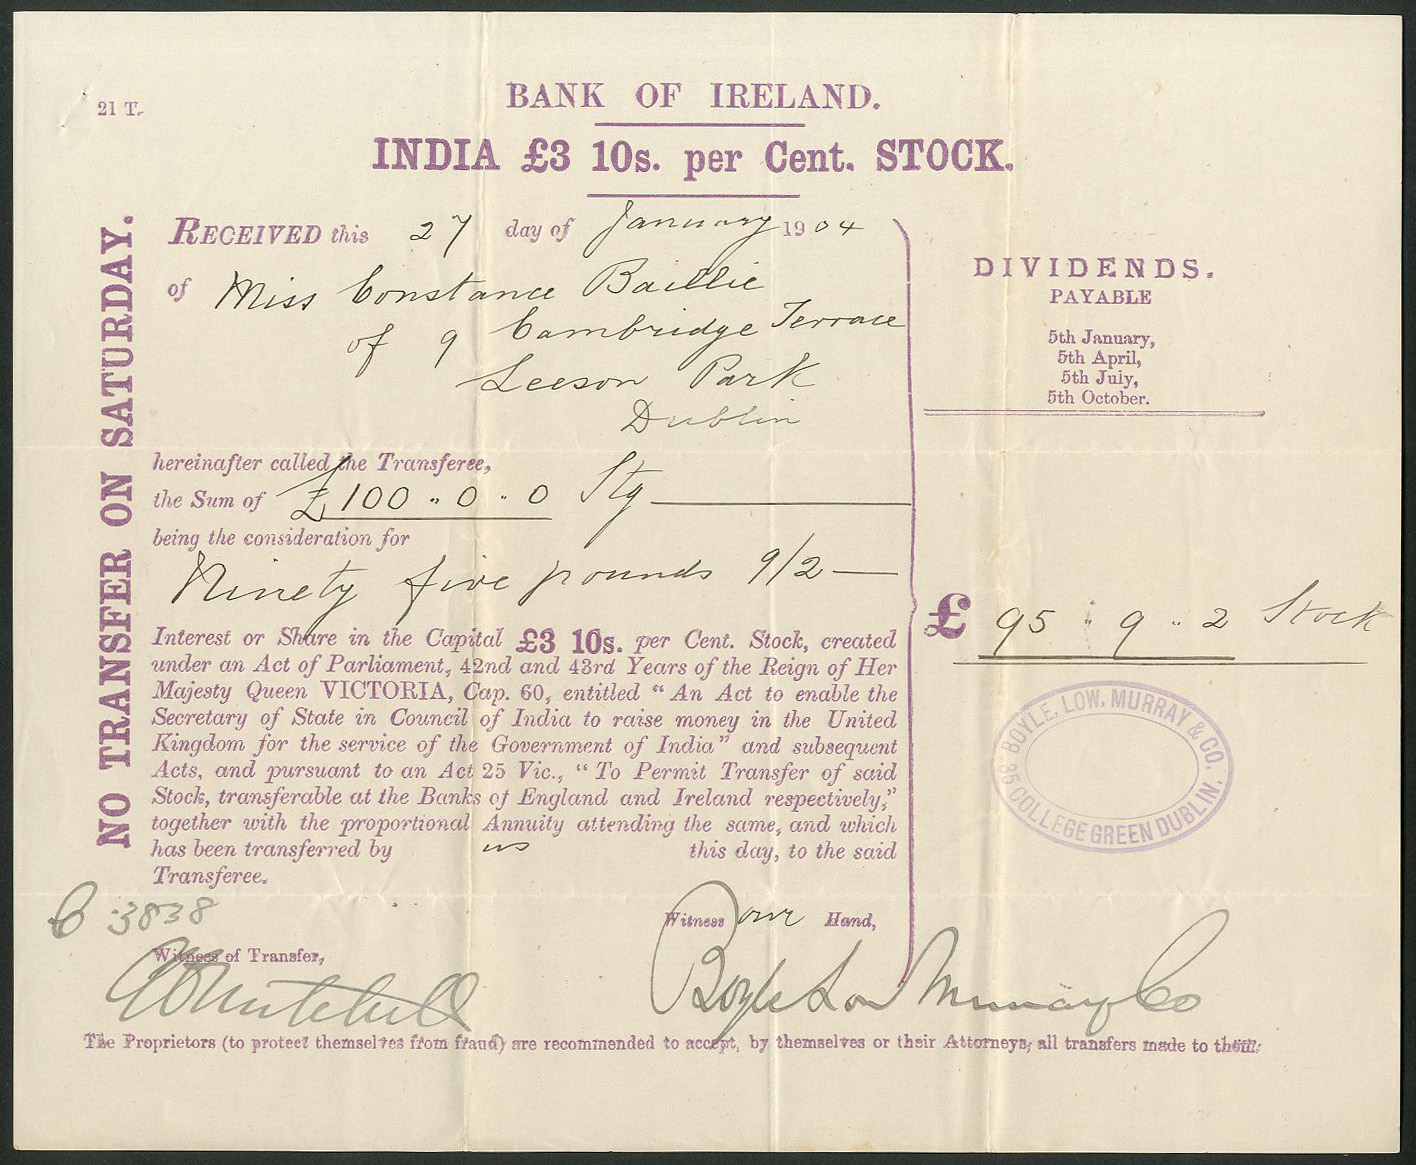 21 T.
BANK OF IRELAND.
INDIA £3 10s. per Cent. STOCK.
NO TRANSFER ON SATURDAY.
RECEIVED this 27 day of January 1904
of Miss Constance Baillie
of 9 Cambridge Terrace
Leeson Park
Dublin
hereinafter called the Transferee,
the Sum of £100 " 0 " 0 Stg
being the consideration for
Ninety five pounds 9/2 —
Interest or Share in the Capital £3 10s. per Cent. Stock, created
under an Act of Parliament, 42nd and 43rd Years of the Reign of Her
Majesty Queen VICTORIA, Cap. 60, entitled “An Act to enable the
Secretary of State in Council of India to raise money in the United
Kingdom for the service of the Government of India” and subsequent
Acts, and pursuant to an Act 25 Vic., “To Permit Transfer of said
Stock, transferable at the Banks of England and Ireland respectively,”
together with the proportional Annuity attending the same, and which
has been transferred by us this day, to the said
Transferee.
DIVIDENDS.
PAYABLE
5th January,
5th April,
5th July,
5th October.
£ 95 " 9 " 2 Stock
BOYLE, LOW, MURRAY & CO.
35 COLLEGE GREEN DUBLIN.
3838
Witness our Hand,
Witness of Transfer,
Boyle Low Murray & Co
The Proprietors (to protect themselves from fraud) are recommended to accept, by themselves or their Attorneys, all transfers made to them.